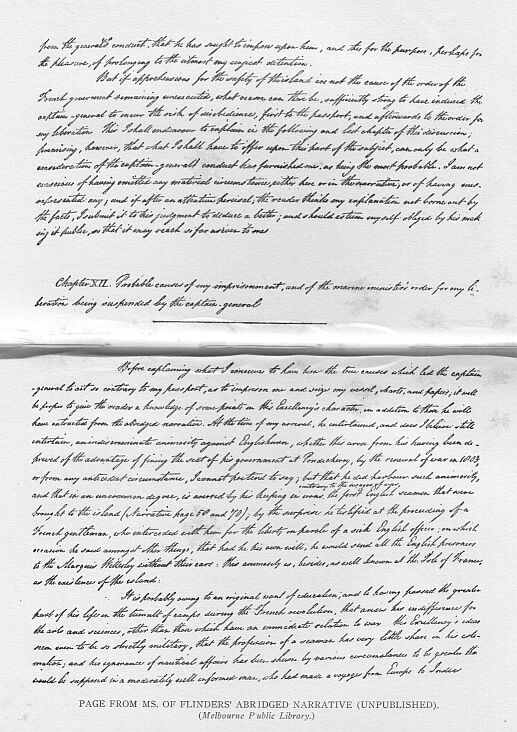 from the general's conduct, that he has sought to impose upon him, and this for the purpose, perhaps for
the pleasure, of prolonging to the utmost my unjust detention.
But if apprehensions for the safety of the island are not the cause of the order of the
French government remaining unexecuted, what reason can there be, sufficiently strong to have induced the
captain-general to incur the risk of disobedience, first to the passport, and afterwards to the order for
my liberation. This I shall endeavour to explain in the following and last chapter of this discussion;
promising, however, that what I shall have to offer upon this part of the subject, can only be what a
consideration of the captain-general's conduct has furnished me, as being the most probable. I am not
conscious of having omitted any material circumstance, either here or in the narrative, or of having mis-
represented any; and if after an attentive perusal, the reader thinks my explanation not borne out by
the facts, I submit it to his judgment to deduce a better; and should esteem myself obliged by his mak
ing it public, so that it may reach so far as even to me
Chapter XII. Probable causes of my imprisonment, and of the marine minister's order for my li-
beration being suspended by the captain-general
Before explaining what I conceive to have been the true causes which led the captain
-general to act so contrary to my passport, as to imprison me and seize my vessel, charts, and papers, it will
be proper to give the reader a knowledge of some points in His Excellency's character, in addition to those he will
have extracted from the abridged narrative. At the time of my arrival, he entertained, and does I believe still
entertain, an indiscriminate animosity against Englishmen, whether this arose from his having been de-
prived of the advantage of fixing the seat of his government at Pondicherry, by the renewal of war in 1803,
or from any antecedent circumstance, I cannot pretend to say; but that he did harbour such animosity,
and that in an uncommon degree, is averred by his keeping in irons, contrary to the usages of war, the first English seamen that were
brought to the island (Narrative page 58 and 70), by the surprise he testified at the proceeding of a
French gentleman, who interceded with him for the liberty on parole of a sick English officer; on which
occasion he said amongst other things, that had he his own will, he would send all the English prisoners
to the Marquis Wellesley without their ears: this animosity is, besides, as well known at the Isle of France,
as the existence of the island.
It is probably owing to an original want of education, and to having passed the greater
part of his life in the tumult of camps during the French revolution, that arises his indifference for
the arts and sciences, other than those which have an immediate relation to war. His Excellency's ideas
seem even to be so strictly military, that the profession of a seaman has very little share in his esti-
mation; and his ignorance of nautical affairs has been shewn by various circumstances to be greater than
would be supposed in a moderately well informed man, who had made a voyage from Europe to India
PAGE FROM MS. OF FLINDERS' ABRIDGED NARRATIVE (UNPUBLISHED).
(Melbourne Public Library.)